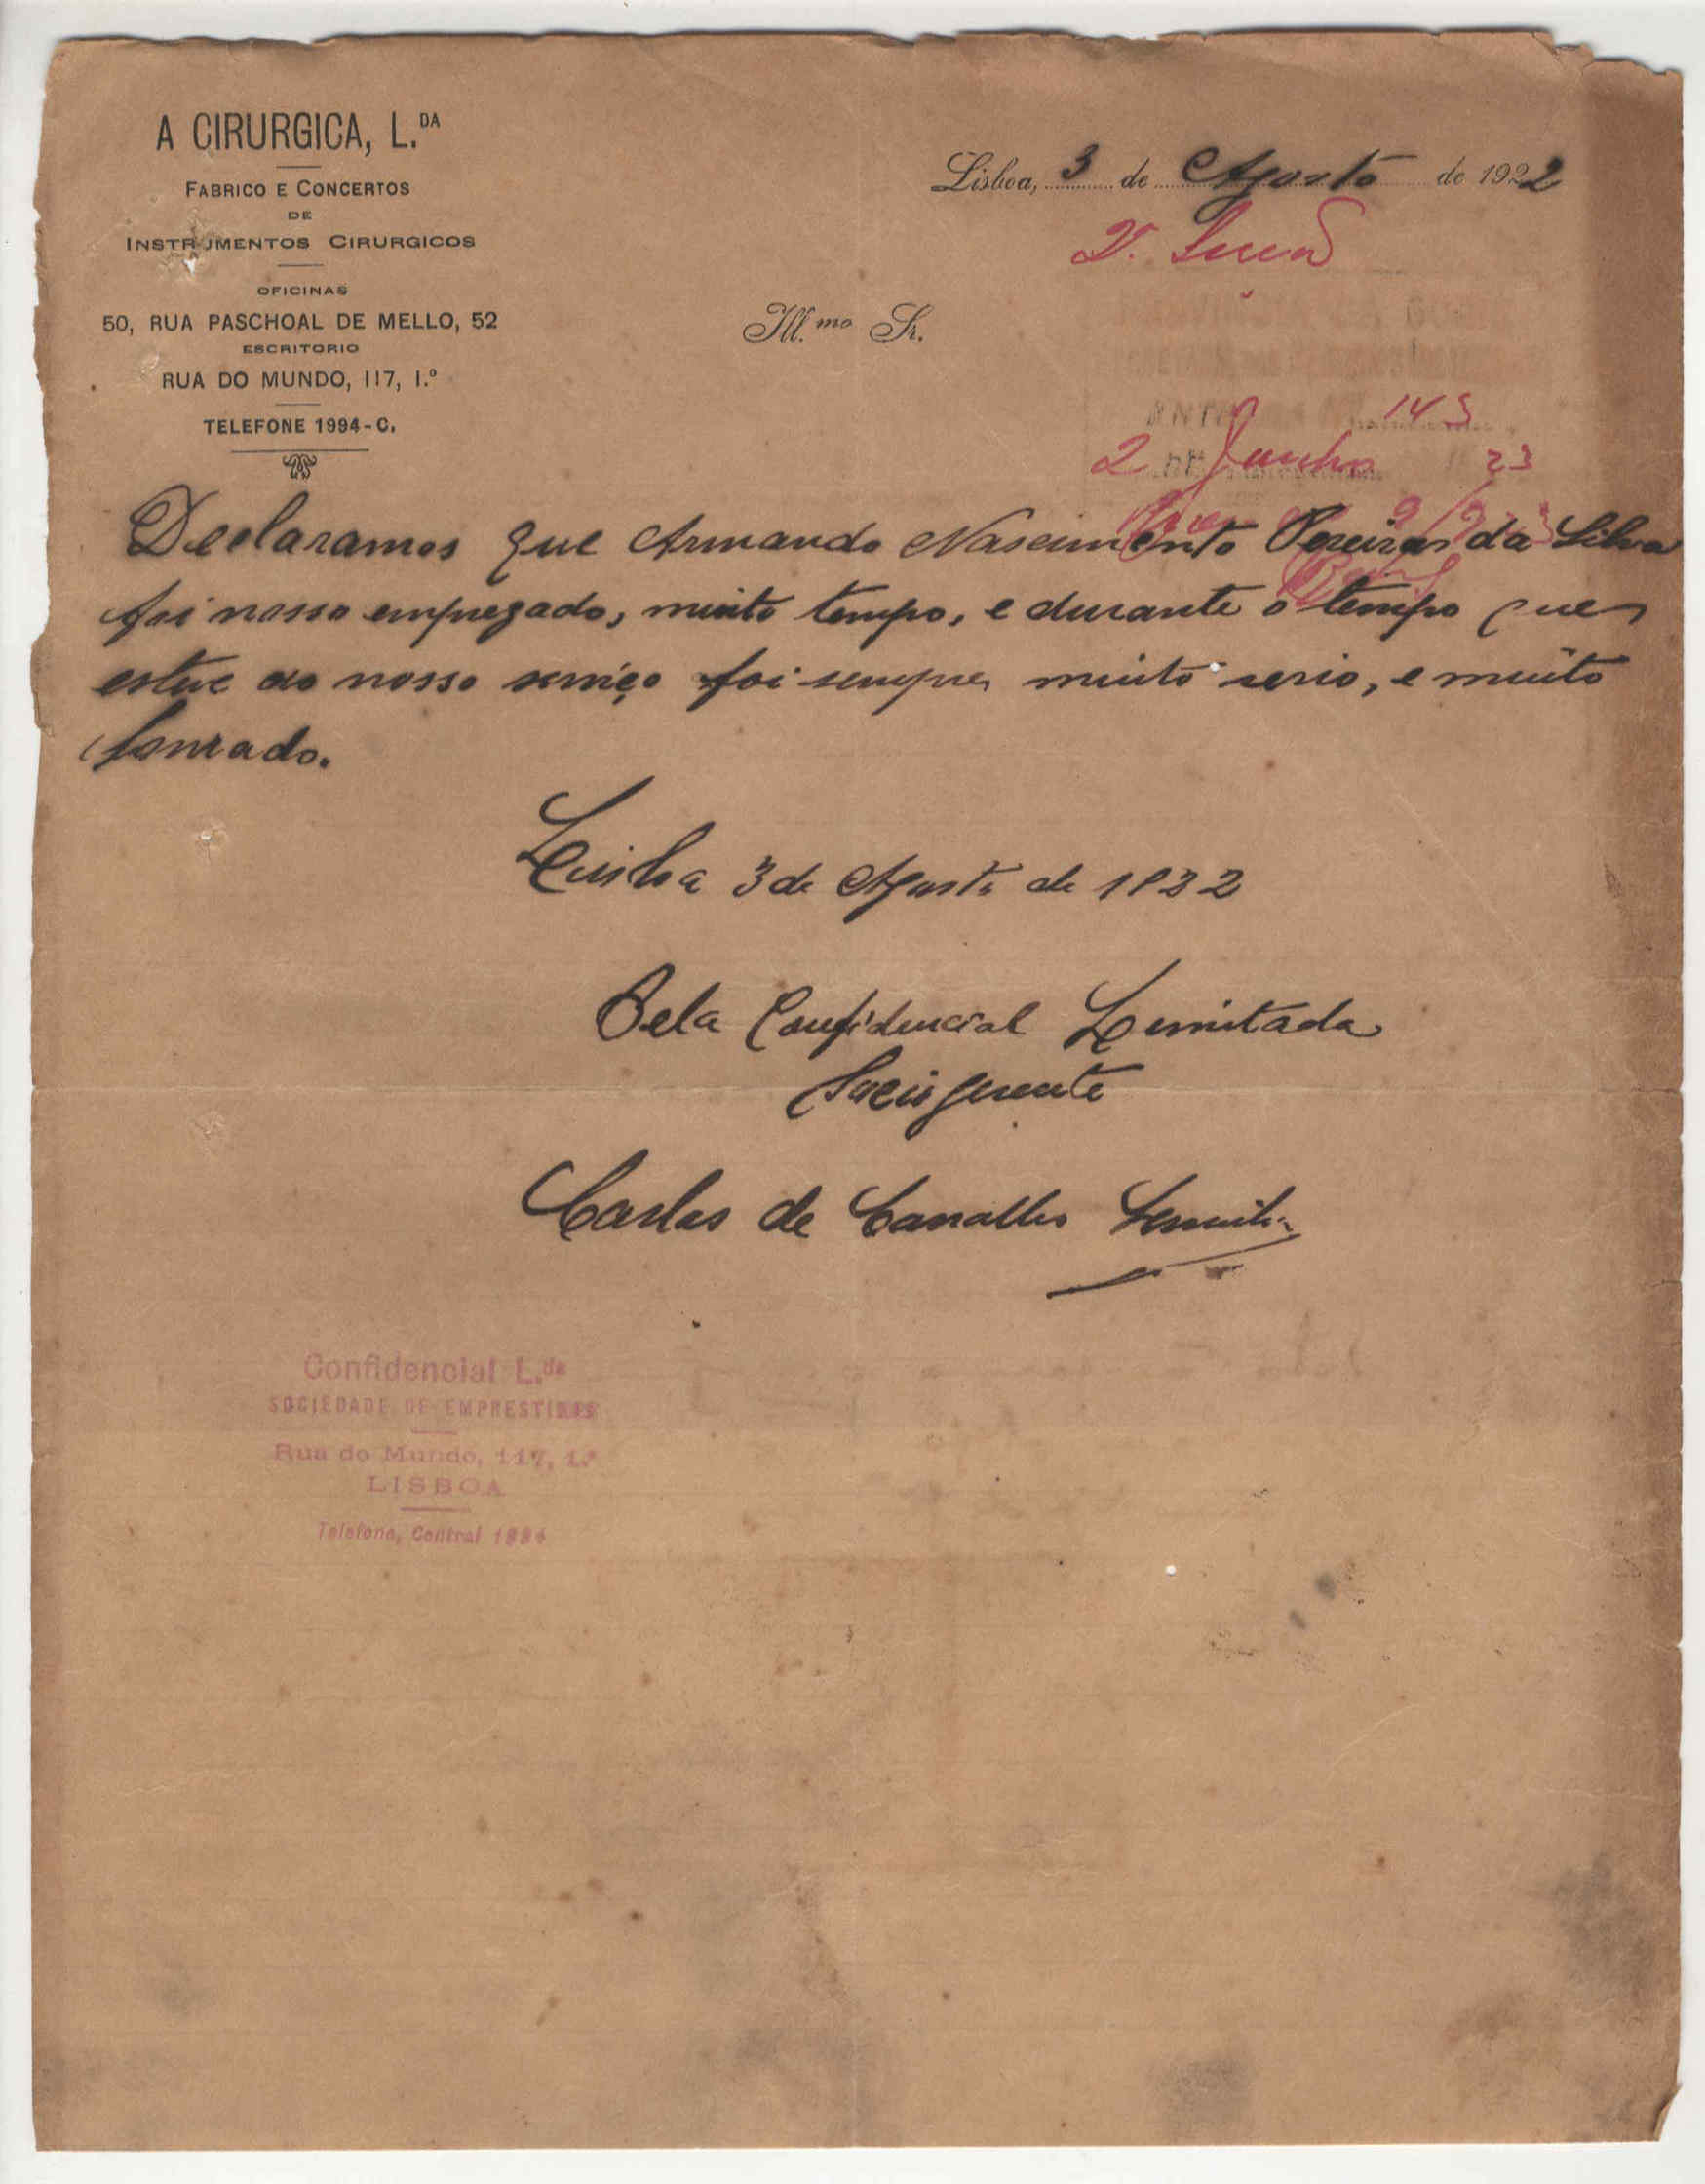 A CIRURGICA, L.DA
FABRICO E CONCERTOS
DE
INSTRUMENTOS CIRURGICOS
OFICINAS
50, RUA PASCHOAL DE MELLO, 52
ESCRITORIO
RUA DO MUNDO, 117, 1.º
TELEFONE 1994-C.
Lisboa, 3 de Agosto de 1922
Ill.mo Sr.
143
2 Junho 23
Declaramos que Armando Nascimento Pereira da Silva
foi nosso empregado, muito tempo, e durante o tempo que
esteve ao nosso serviço foi sempre muito serio, e muito
honrado.
Lisboa 3 de Agosto de 1922
Pela Confidencial Limitada
Socio gerente
Carlos de Carvalho
Confidencial L.da
SOCIEDADE DE EMPRESTIMOS
Rua do Mundo, 117, 1.º
LISBOA
Telefone, Central 1994